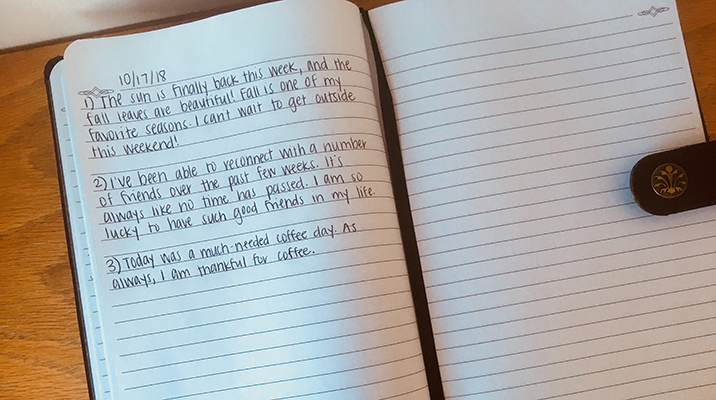 10/17/18
1) The sun is finally back this week, and the
fall leaves are beautiful! Fall is one of my
favorite seasons. I can't wait to get outside
this weekend!
2) I've been able to reconnect with a number
of friends over the past few weeks. It's
always like no time has passed. I am so
lucky to have such good friends in my life.
3) Today was a much-needed coffee day. As
always, I am thankful for coffee.